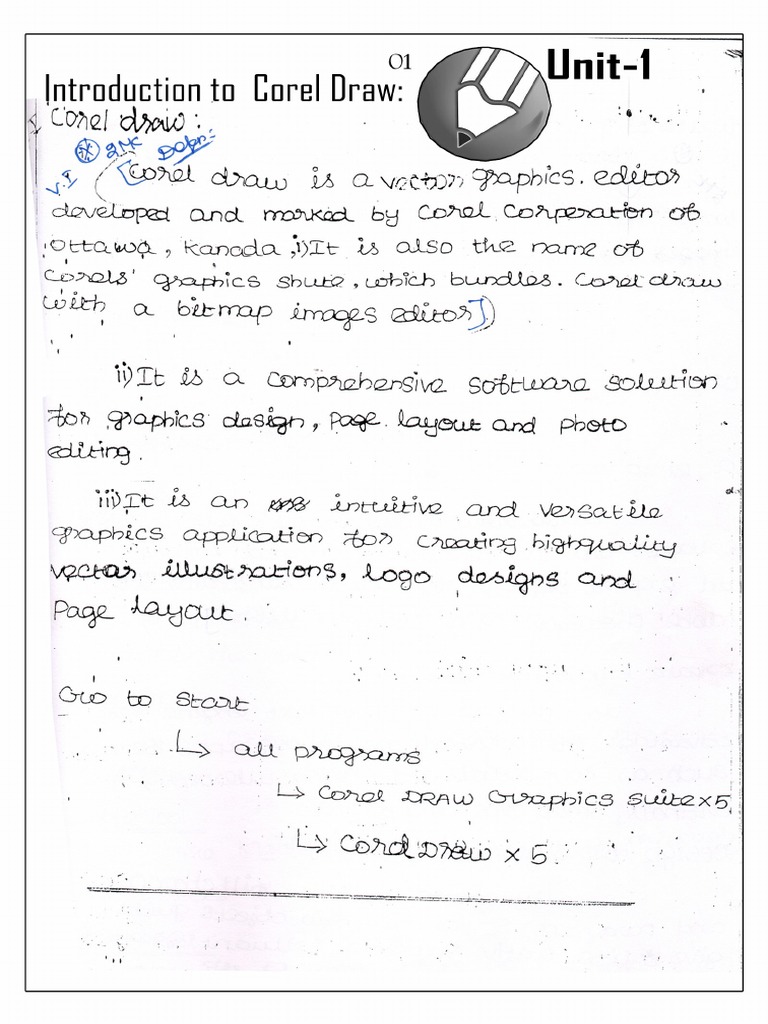 01
Unit-1
Introduction to Corel Draw:
Corel draw:
V.I 2M Defn:
[Corel draw is a vector graphics. editor
developed and marked by Corel Corperation of
Ottawa, Kanada, i) It is also the name of
Corels' graphics shute, which bundles. Corel draw
with a bitmap images editor])
ii) It is a comprehensive software solution
for graphics design, Page layout and photo
editing.
iii) It is an intuitive and versatile
graphics application for creating highquality
vector illustrations, logo designs and
Page layout.
Go to Start
↳ all programs
↳ Corel DRAW Graphics Suite x5
↳ Corel Draw x 5